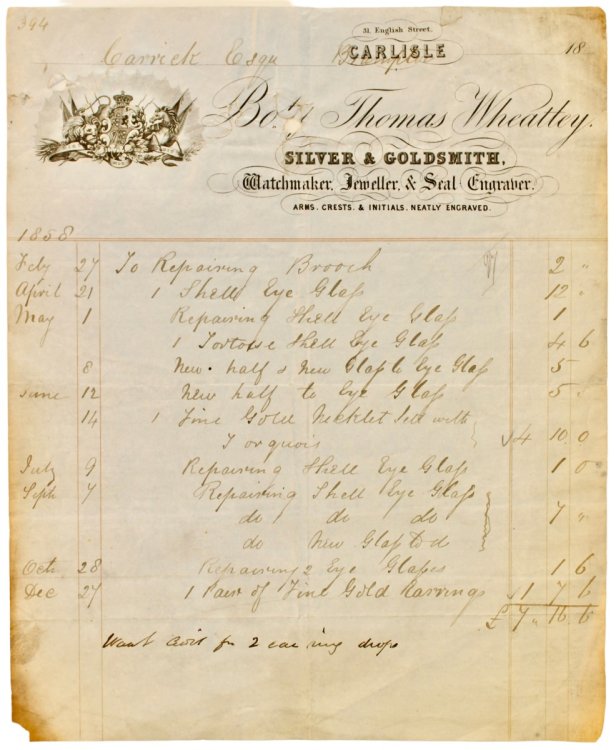 394
31. English Street.
CARLISLE
Carrick Esqr Brampton 18
Bot of Thomas Wheatley.
SILVER & GOLDSMITH,
Watchmaker, Jeweller, & Seal Engraver.
ARMS. CRESTS. & INITIALS. NEATLY ENGRAVED.
1858
Feby 27 To Repairing Brooch 2 "
April 21 1 Shell Eye Glass 12 "
May 1 Repairing Shell Eye Glass 1
1 Tortoise Shell Eye Glass 4 6
8 New half & New Glass to Eye Glass 5
June 12 New half to Eye Glass 5 "
14 1 Fine Gold Necklet set with
Torquois 4 10 0
July 9 Repairing Shell Eye Glass 1 0
Sept 7 Repairing Shell Eye Glass
do do do 7 "
do New Glass to d
Oct 28 Repairing 2 Eye Glasses 1 6
Dec 27 1 Pair of Fine Gold Earrings 1 7 6
£ 7 " 16 6
Want for 2 ear ring drops